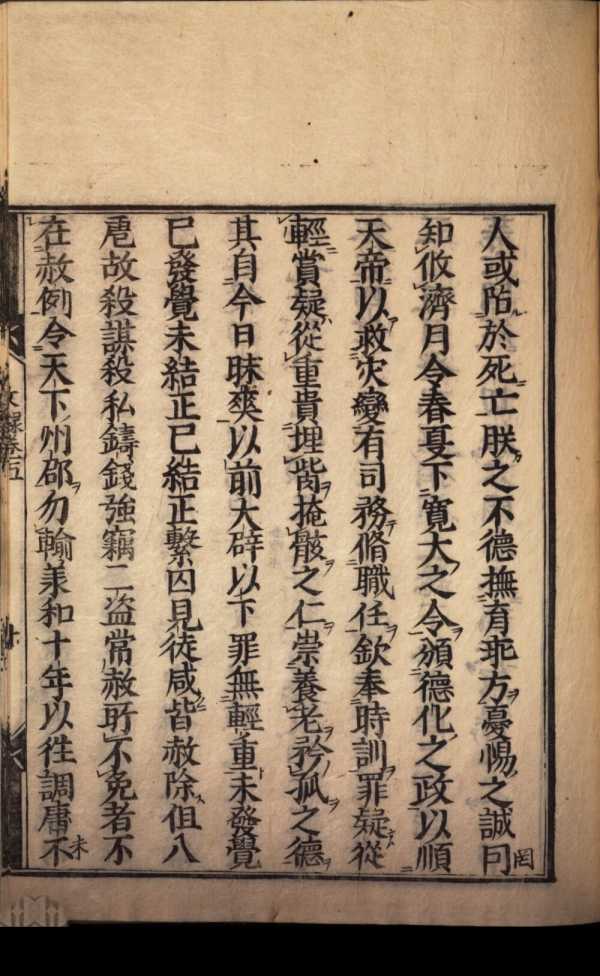 人或陷於死亡朕之不德撫育乖方憂惕之誠罔
知攸濟月令春夏下寬大之令頒德化之政以順
天帝以救灾變有司務脩職任欽奉時訓罪疑從
輕賞疑從重貴埋胔掩骸之仁崇養老矜孤之德
其自今日昧爽以前大辟以下罪無輕重未發覺
已發覺未結正已結正繫囚見徒咸皆赦除但八
虐故殺謀殺私鑄錢強竊二盗常赦所不免者不
在赦例令天下州郡勿輸義和十年以徃調庸不
未